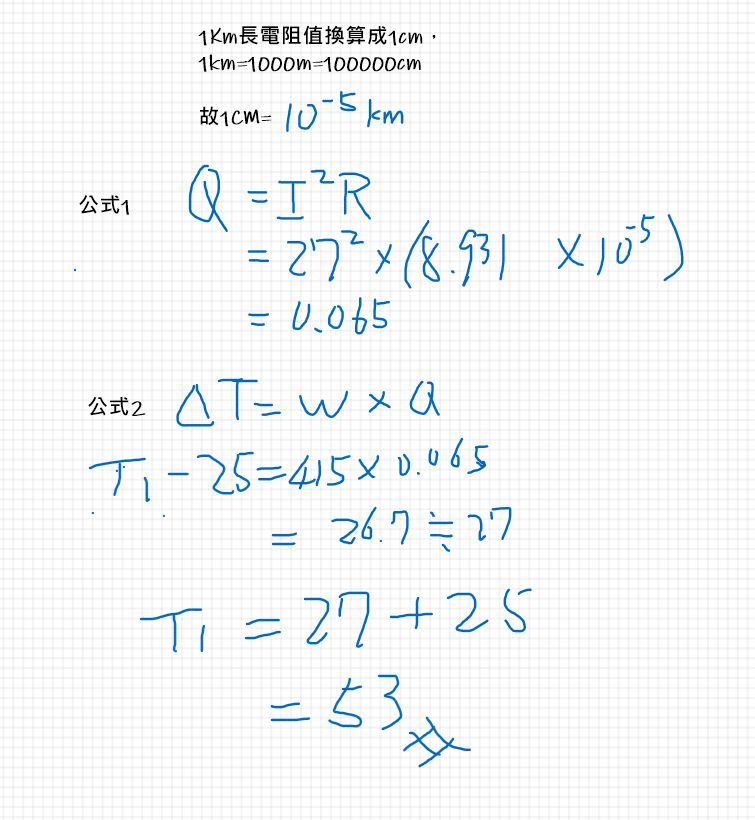 1Km長電阻值換算成1cm，
1km=1000m=100000cm
故1CM= 10⁻⁵ km
公式1 Q = I²R
= 27² × (8.931 × 10⁻⁵)
= 0.065
公式2 ΔT = W × Q
T₁ - 25 = 415 × 0.065
= 26.7 ≒ 27
T₁ = 27 + 25
= 53